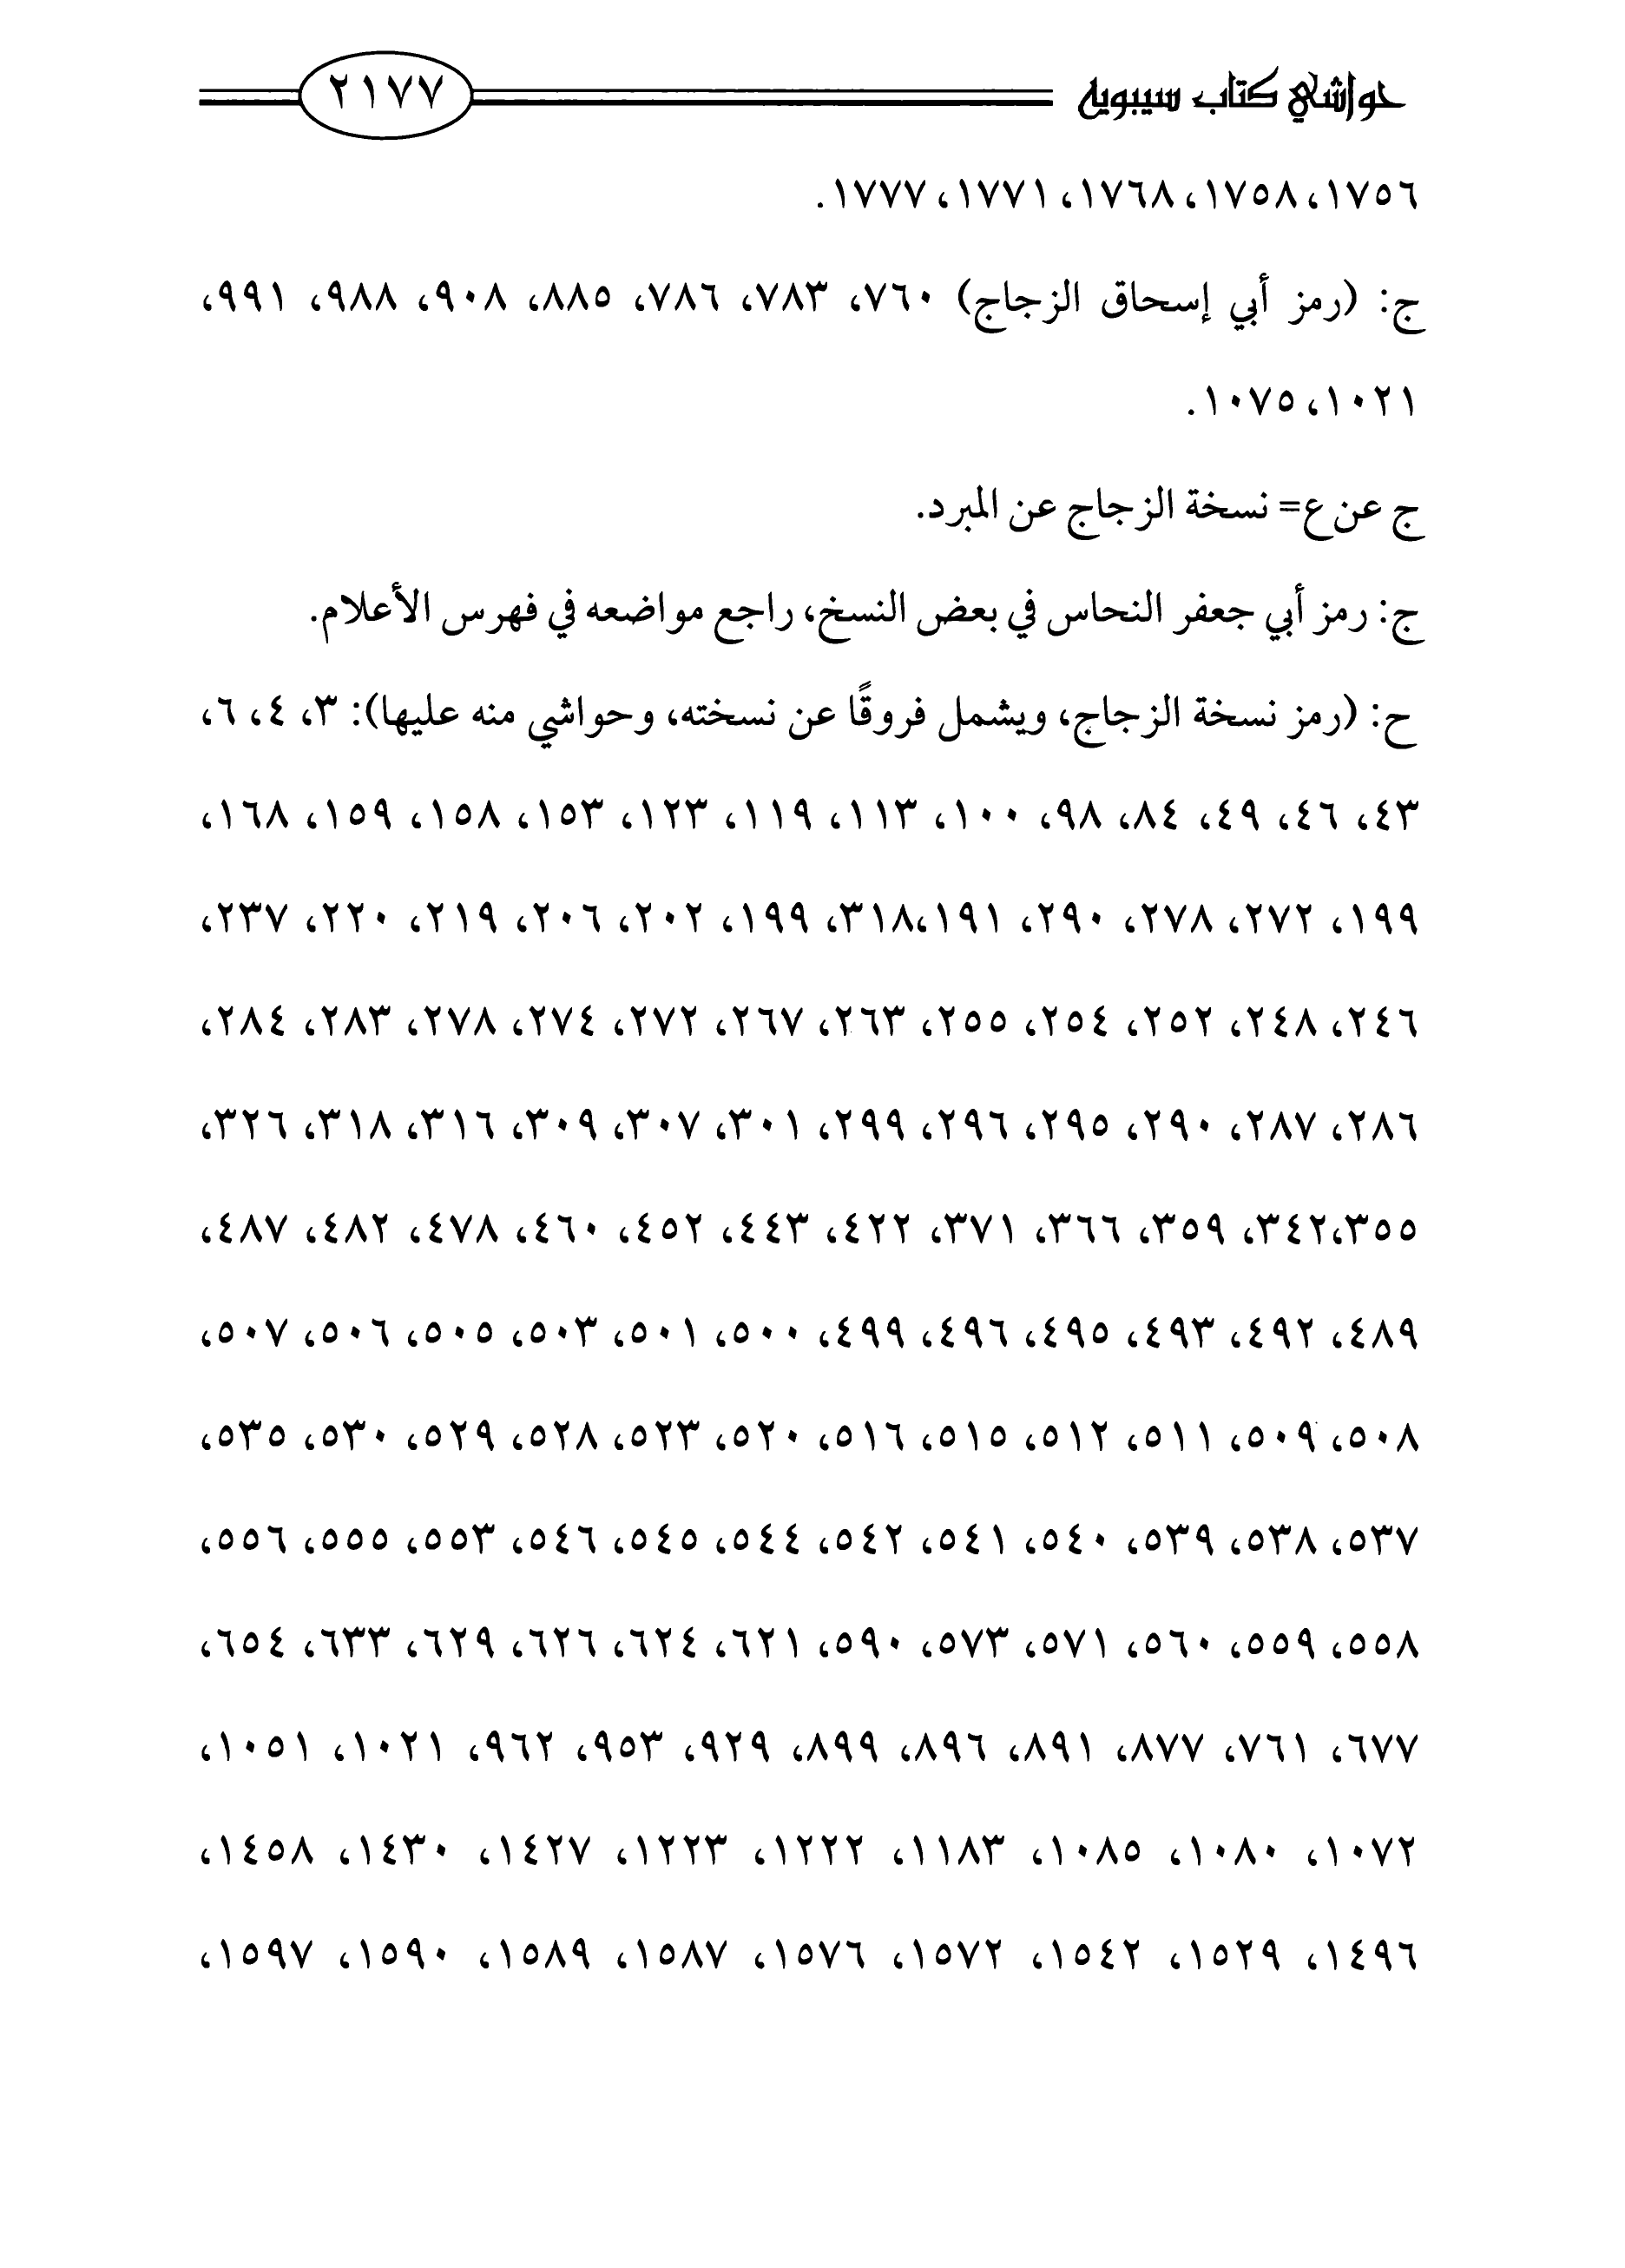 حواشي كتاب سيبويه ٢١٧٧
١٧٥٦، ١٧٥٨، ١٧٦٨، ١٧٧١، ١٧٧٧.
ج: (رمز أبي إسحاق الزجاج) ٧٦٠، ٧٨٣، ٧٨٦، ٨٨٥، ٩٠٨، ٩٨٨، ٩٩١،
١٠٢١، ١٠٧٥.
ج عن ع= نسخة الزجاج عن المبرد.
ج: رمز أبي جعفر النحاس في بعض النسخ، راجع مواضعه في فهرس الأعلام.
ح: (رمز نسخة الزجاج، ويشمل فروقًا عن نسخته، وحواشي منه عليها): ٣، ٤، ٦،
٤٣، ٤٦، ٤٩، ٨٤، ٩٨، ١٠٠، ١١٣، ١١٩، ١٢٣، ١٥٣، ١٥٨، ١٥٩، ١٦٨،
١٩٩، ٢٧٢، ٢٧٨، ٢٩٠، ١٩١،٣١٨، ١٩٩، ٢٠٢، ٢٠٦، ٢١٩، ٢٢٠، ٢٣٧،
٢٤٦، ٢٤٨، ٢٥٢، ٢٥٤، ٢٥٥، ٢٦٣، ٢٦٧، ٢٧٢، ٢٧٤، ٢٧٨، ٢٨٣، ٢٨٤،
٢٨٦، ٢٨٧، ٢٩٠، ٢٩٥، ٢٩٦، ٢٩٩، ٣٠١، ٣٠٧، ٣٠٩، ٣١٦، ٣١٨، ٣٢٦،
٣٥٥،٣٤٢، ٣٥٩، ٣٦٦، ٣٧١، ٤٢٢، ٤٤٣، ٤٥٢، ٤٦٠، ٤٧٨، ٤٨٢، ٤٨٧،
٤٨٩، ٤٩٢، ٤٩٣، ٤٩٥، ٤٩٦، ٤٩٩، ٥٠٠، ٥٠١، ٥٠٣، ٥٠٥، ٥٠٦، ٥٠٧،
٥٠٨، ٥٠٩، ٥١١، ٥١٢، ٥١٥، ٥١٦، ٥٢٠، ٥٢٣، ٥٢٨، ٥٢٩، ٥٣٠، ٥٣٥،
٥٣٧، ٥٣٨، ٥٣٩، ٥٤٠، ٥٤١، ٥٤٢، ٥٤٤، ٥٤٥، ٥٤٦، ٥٥٣، ٥٥٥، ٥٥٦،
٥٥٨، ٥٥٩، ٥٦٠، ٥٧١، ٥٧٣، ٥٩٠، ٦٢١، ٦٢٤، ٦٢٦، ٦٢٩، ٦٣٣، ٦٥٤،
٦٧٧، ٧٦١، ٨٧٧، ٨٩١، ٨٩٦، ٨٩٩، ٩٢٩، ٩٥٣، ٩٦٢، ١٠٢١، ١٠٥١،
١٠٧٢، ١٠٨٠، ١٠٨٥، ١١٨٣، ١٢٢٢، ١٢٢٣، ١٤٢٧، ١٤٣٠، ١٤٥٨،
١٤٩٦، ١٥٢٩، ١٥٤٢، ١٥٧٢، ١٥٧٦، ١٥٨٧، ١٥٨٩، ١٥٩٠، ١٥٩٧،